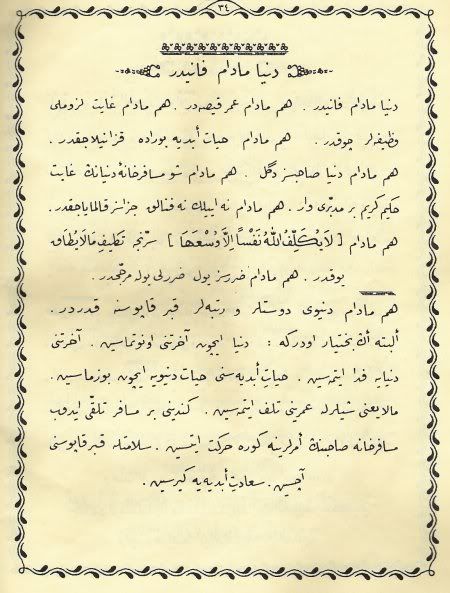 ٣٤
دنيا مادام فانيدر
دنيا مادام فانيدر . هم مادام عمر قيصه‌در . هم مادام غايت لزوملى
وظيفه‌لر چوقدر . هم مادام حيات أبديه بوراده قزانيلاجقدر .
هم مادام دنيا صاحبسز دگل . هم مادام شو مسافرخانهٔ دنيانڭ غايت
حكيم كريم بر مدبّرى وار . هم مادام نه اييلك نه فنالق جزاسز قالماياجقدر .
هم مادام [ لَايُكَلِّفُ اللّٰهُ نَفْسًا اِلَّا وُسْعَهَا ] سرّنجه تكليفِ مَالَايُطَاق
يوقدر . هم مادام ضررسز يول ضررلى يوله مرجّحدر .
هم مادام دنيوى دوستلر و رتبه‌لر قبر قاپوسنه قدردر .
ألبته أڭ بختيار اودركه : دنيا ايچون آخرتنى اونوتماسين . آخرتنى
دنيايه فدا ايتمه‌سين . حياتِ أبديه‌سنى حيات دنيويه ايچون بوزماسين .
مالايعنى شيلرله عمرينى تلف ايتمه‌سين . كندينى بر مسافر تلقّى ايدوب
مسافرخانه صاحبنڭ أمرلرينه گوره حركت ايتسين . سلامتله قبر قاپوسنى
آچسين . سعادتِ أبديه‌يه گيرسين .